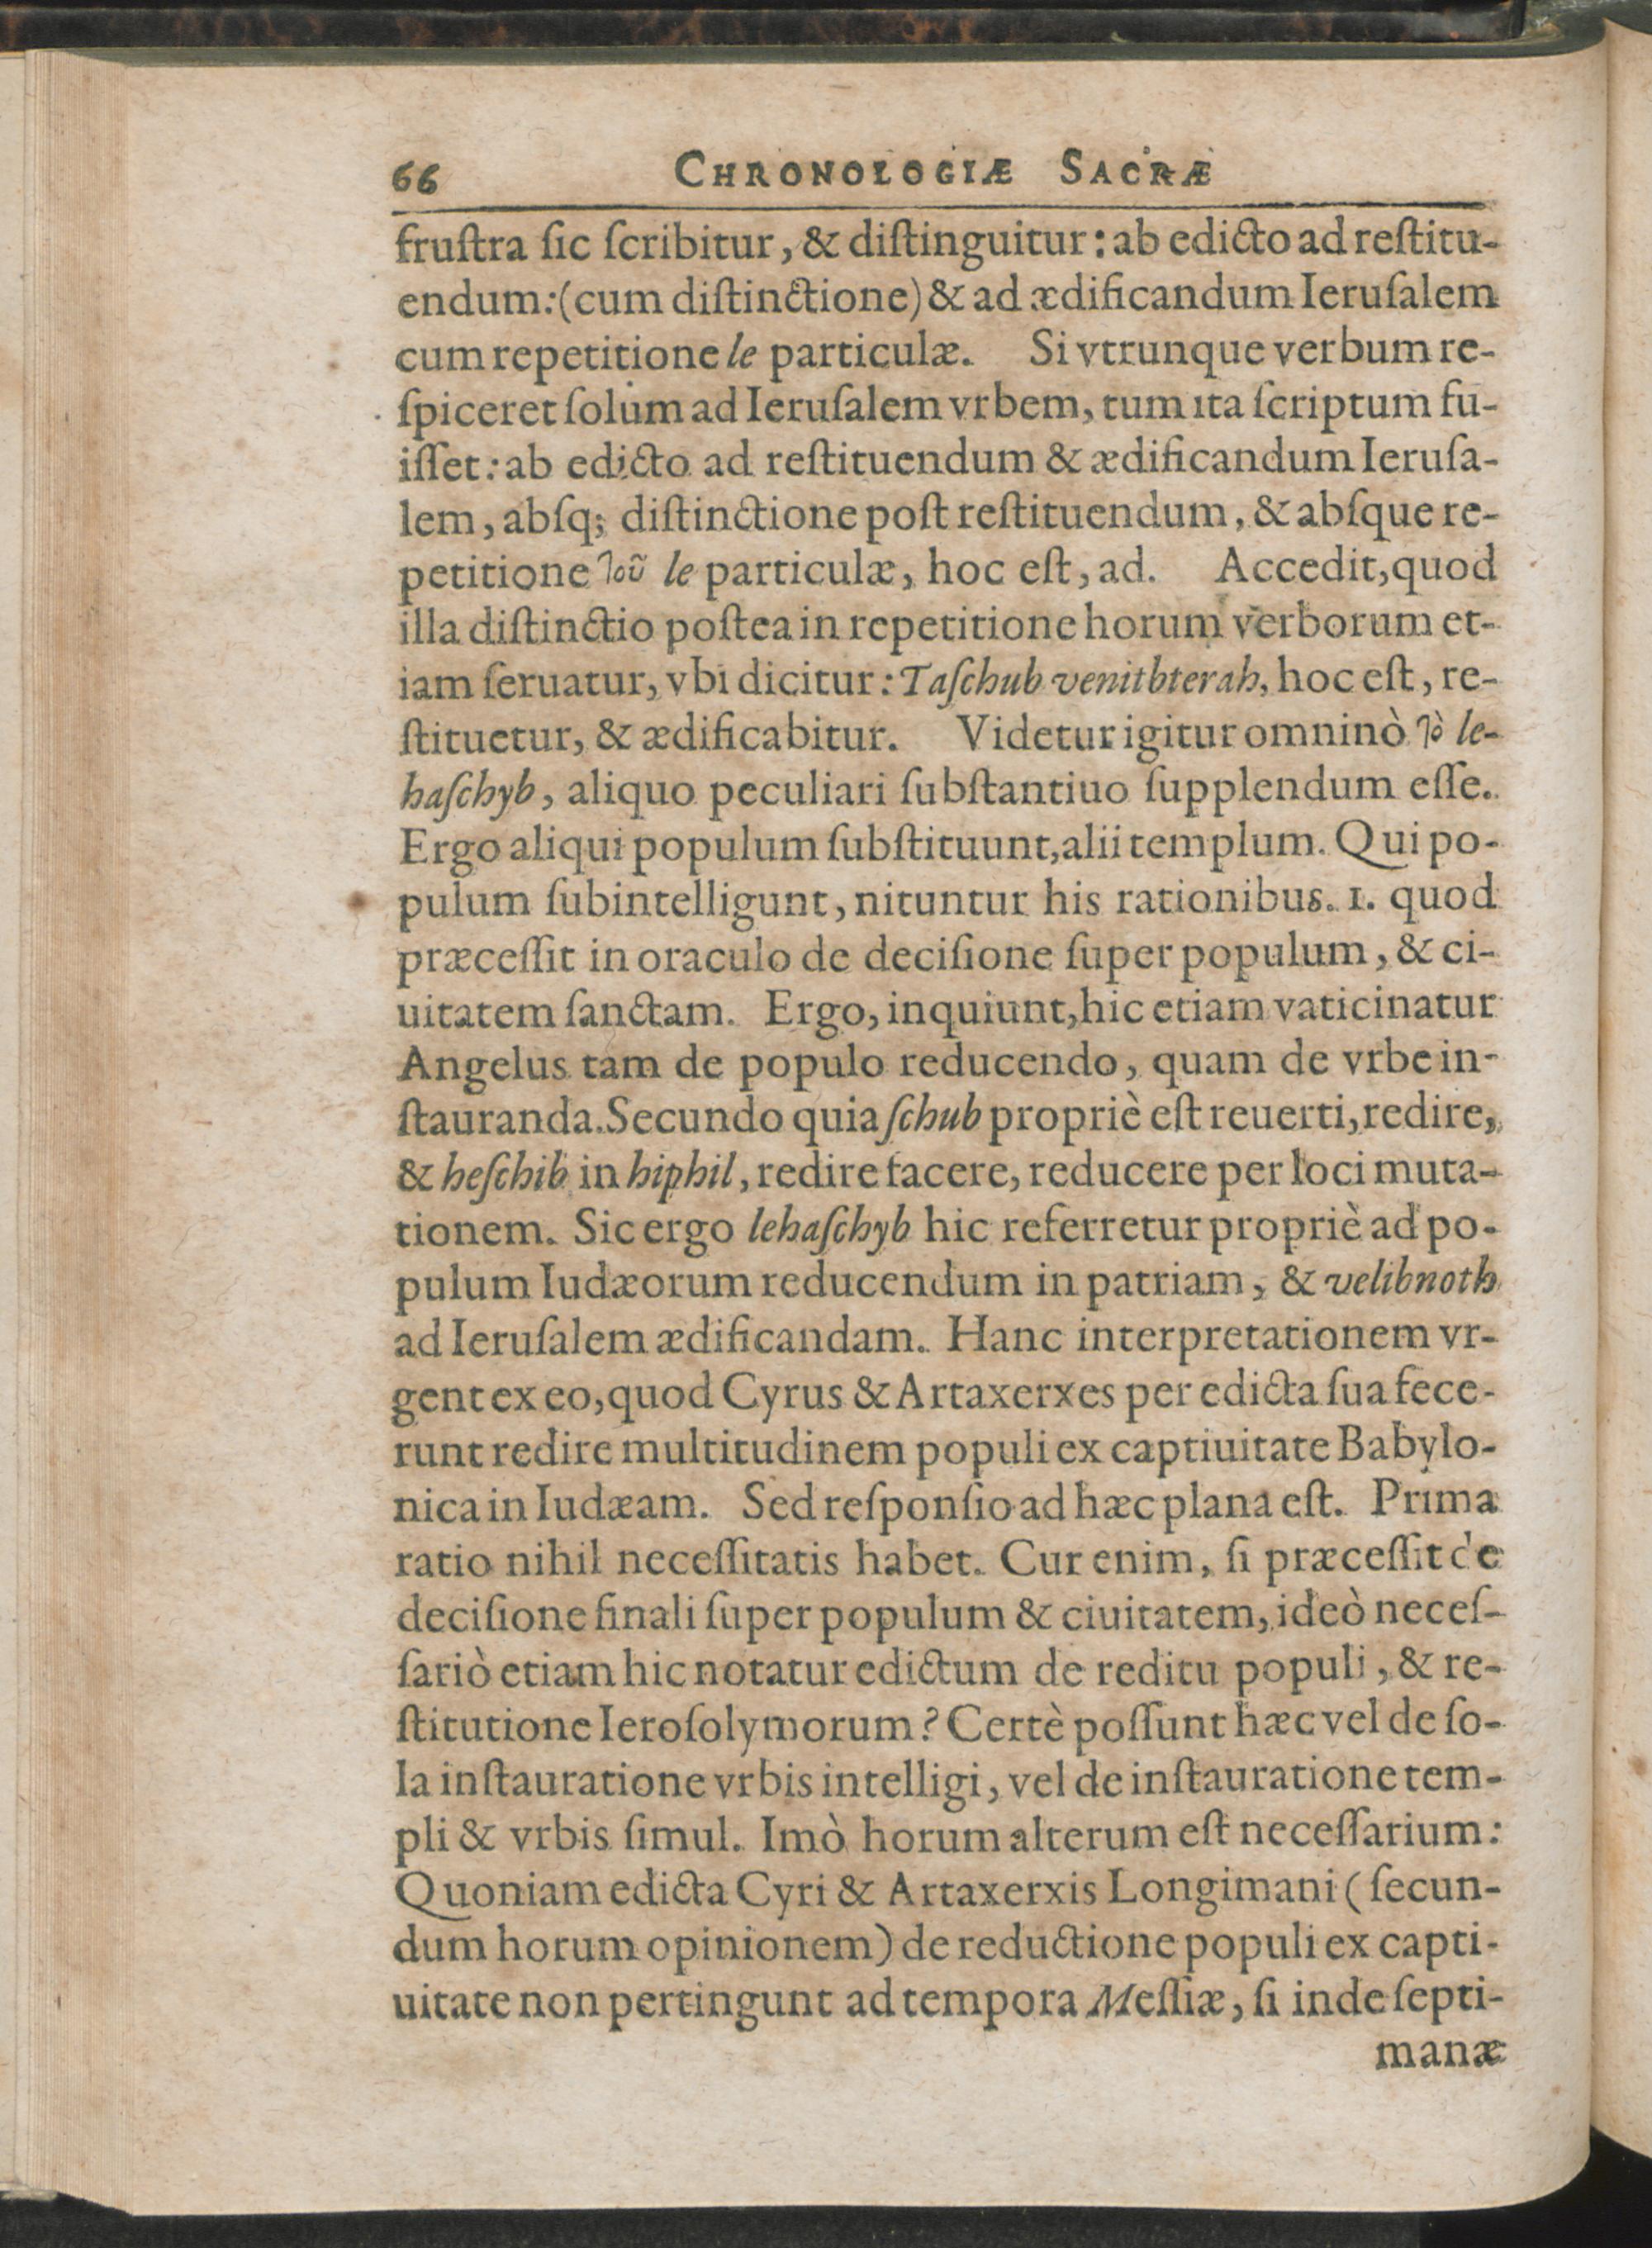 66 CHRONOLOGIÆ SACRÆ
fruſtra ſic ſcribitur, & diſtinguitur: ab edicto ad reſtitu-
endum: (cum diſtinctione) & ad ædificandum Ieruſalem
cum repetitione le particulæ. Si vtrunque verbum re-
ſpiceret ſolùm ad Ieruſalem vrbem, tum ita ſcriptum fu-
iſſet: ab edicto ad reſtituendum & ædificandum Ieruſa-
lem, abſq; diſtinctione poſt reſtituendum, & abſque re-
petitione τοῦ le particulæ, hoc eſt, ad. Accedit, quod
illa diſtinctio poſtea in repetitione horum verborum et-
iam ſeruatur, vbi dicitur: Taſchub venitbterah, hoc eſt, re-
ſtituetur, & ædificabitur. Videtur igitur omninò τὸ le-
haſchyb, aliquo peculiari ſubſtantiuo ſupplendum eſſe.
Ergo aliqui populum ſubſtituunt, alii templum. Qui po-
pulum ſubintelligunt, nituntur his rationibus. 1. quod
præceſſit in oraculo de deciſione ſuper populum, & ci-
uitatem ſanctam. Ergo, inquiunt, hic etiam vaticinatur
Angelus tam de populo reducendo, quam de vrbe in-
ſtauranda. Secundo quia ſchub propriè eſt reuerti, redire,
& heſchib in hiphil, redire facere, reducere per loci muta-
tionem. Sic ergo lehaſchyb hic referretur propriè ad po-
pulum Iudæorum reducendum in patriam, & velibnoth
ad Ieruſalem ædificandam. Hanc interpretationem vr-
gent ex eo, quod Cyrus & Artaxerxes per edicta ſua fece-
runt redire multitudinem populi ex captiuitate Babylo-
nica in Iudæam. Sed reſponſio ad hæc plana eſt. Prima
ratio nihil neceſſitatis habet. Cur enim, ſi præceſſit de
deciſione finali ſuper populum & ciuitatem, ideò neceſ-
ſariò etiam hic notatur edictum de reditu populi, & re-
ſtitutione Ieroſolymorum? Certè poſſunt hæc vel de ſo-
la inſtauratione vrbis intelligi, vel de inſtauratione tem-
pli & vrbis ſimul. Imò horum alterum eſt neceſſarium:
Quoniam edicta Cyri & Artaxerxis Longimani (ſecun-
dum horum opinionem) de reductione populi ex capti-
uitate non pertingunt ad tempora Meſſiæ, ſi inde ſepti-
manæ